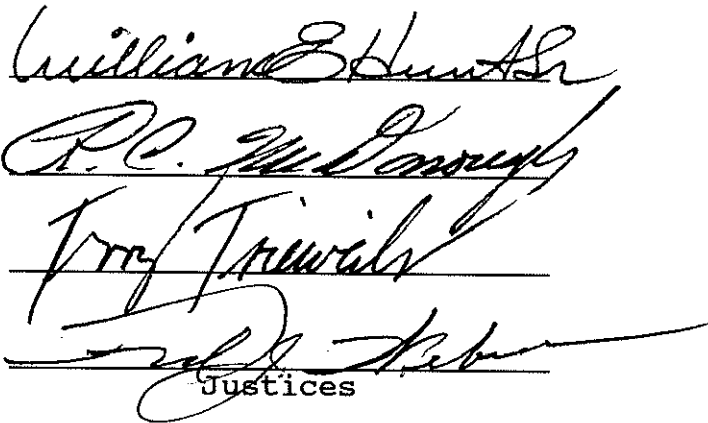 William E Hunt Sr
R.C. McDonough
Terry Trieweiler
Fred J. Weber
Justices